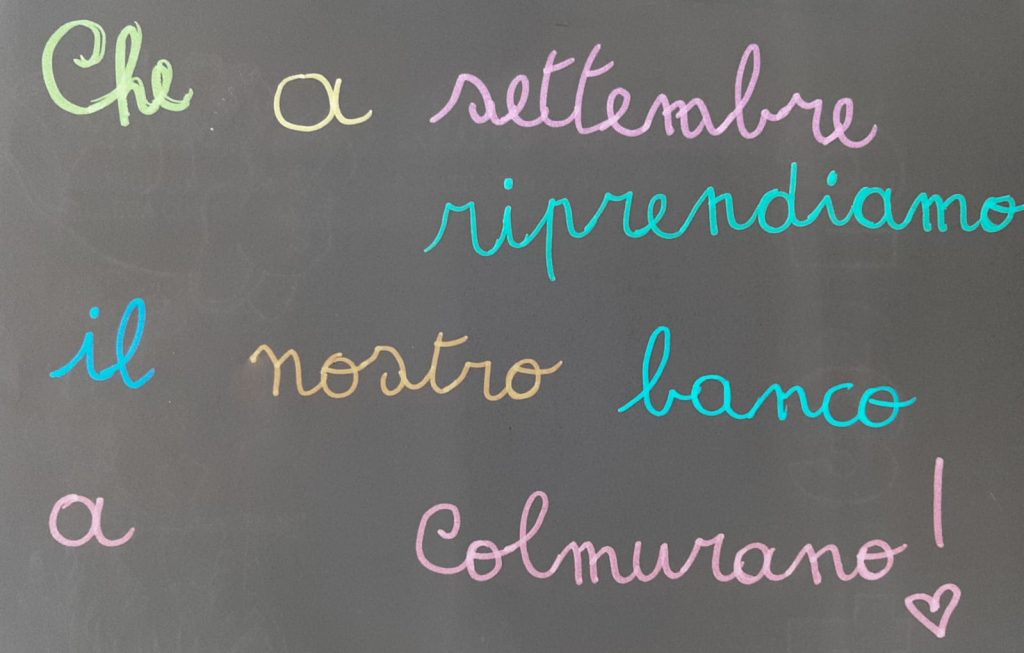 Che a settembre
riprendiamo
il nostro banco
a Colmurano!